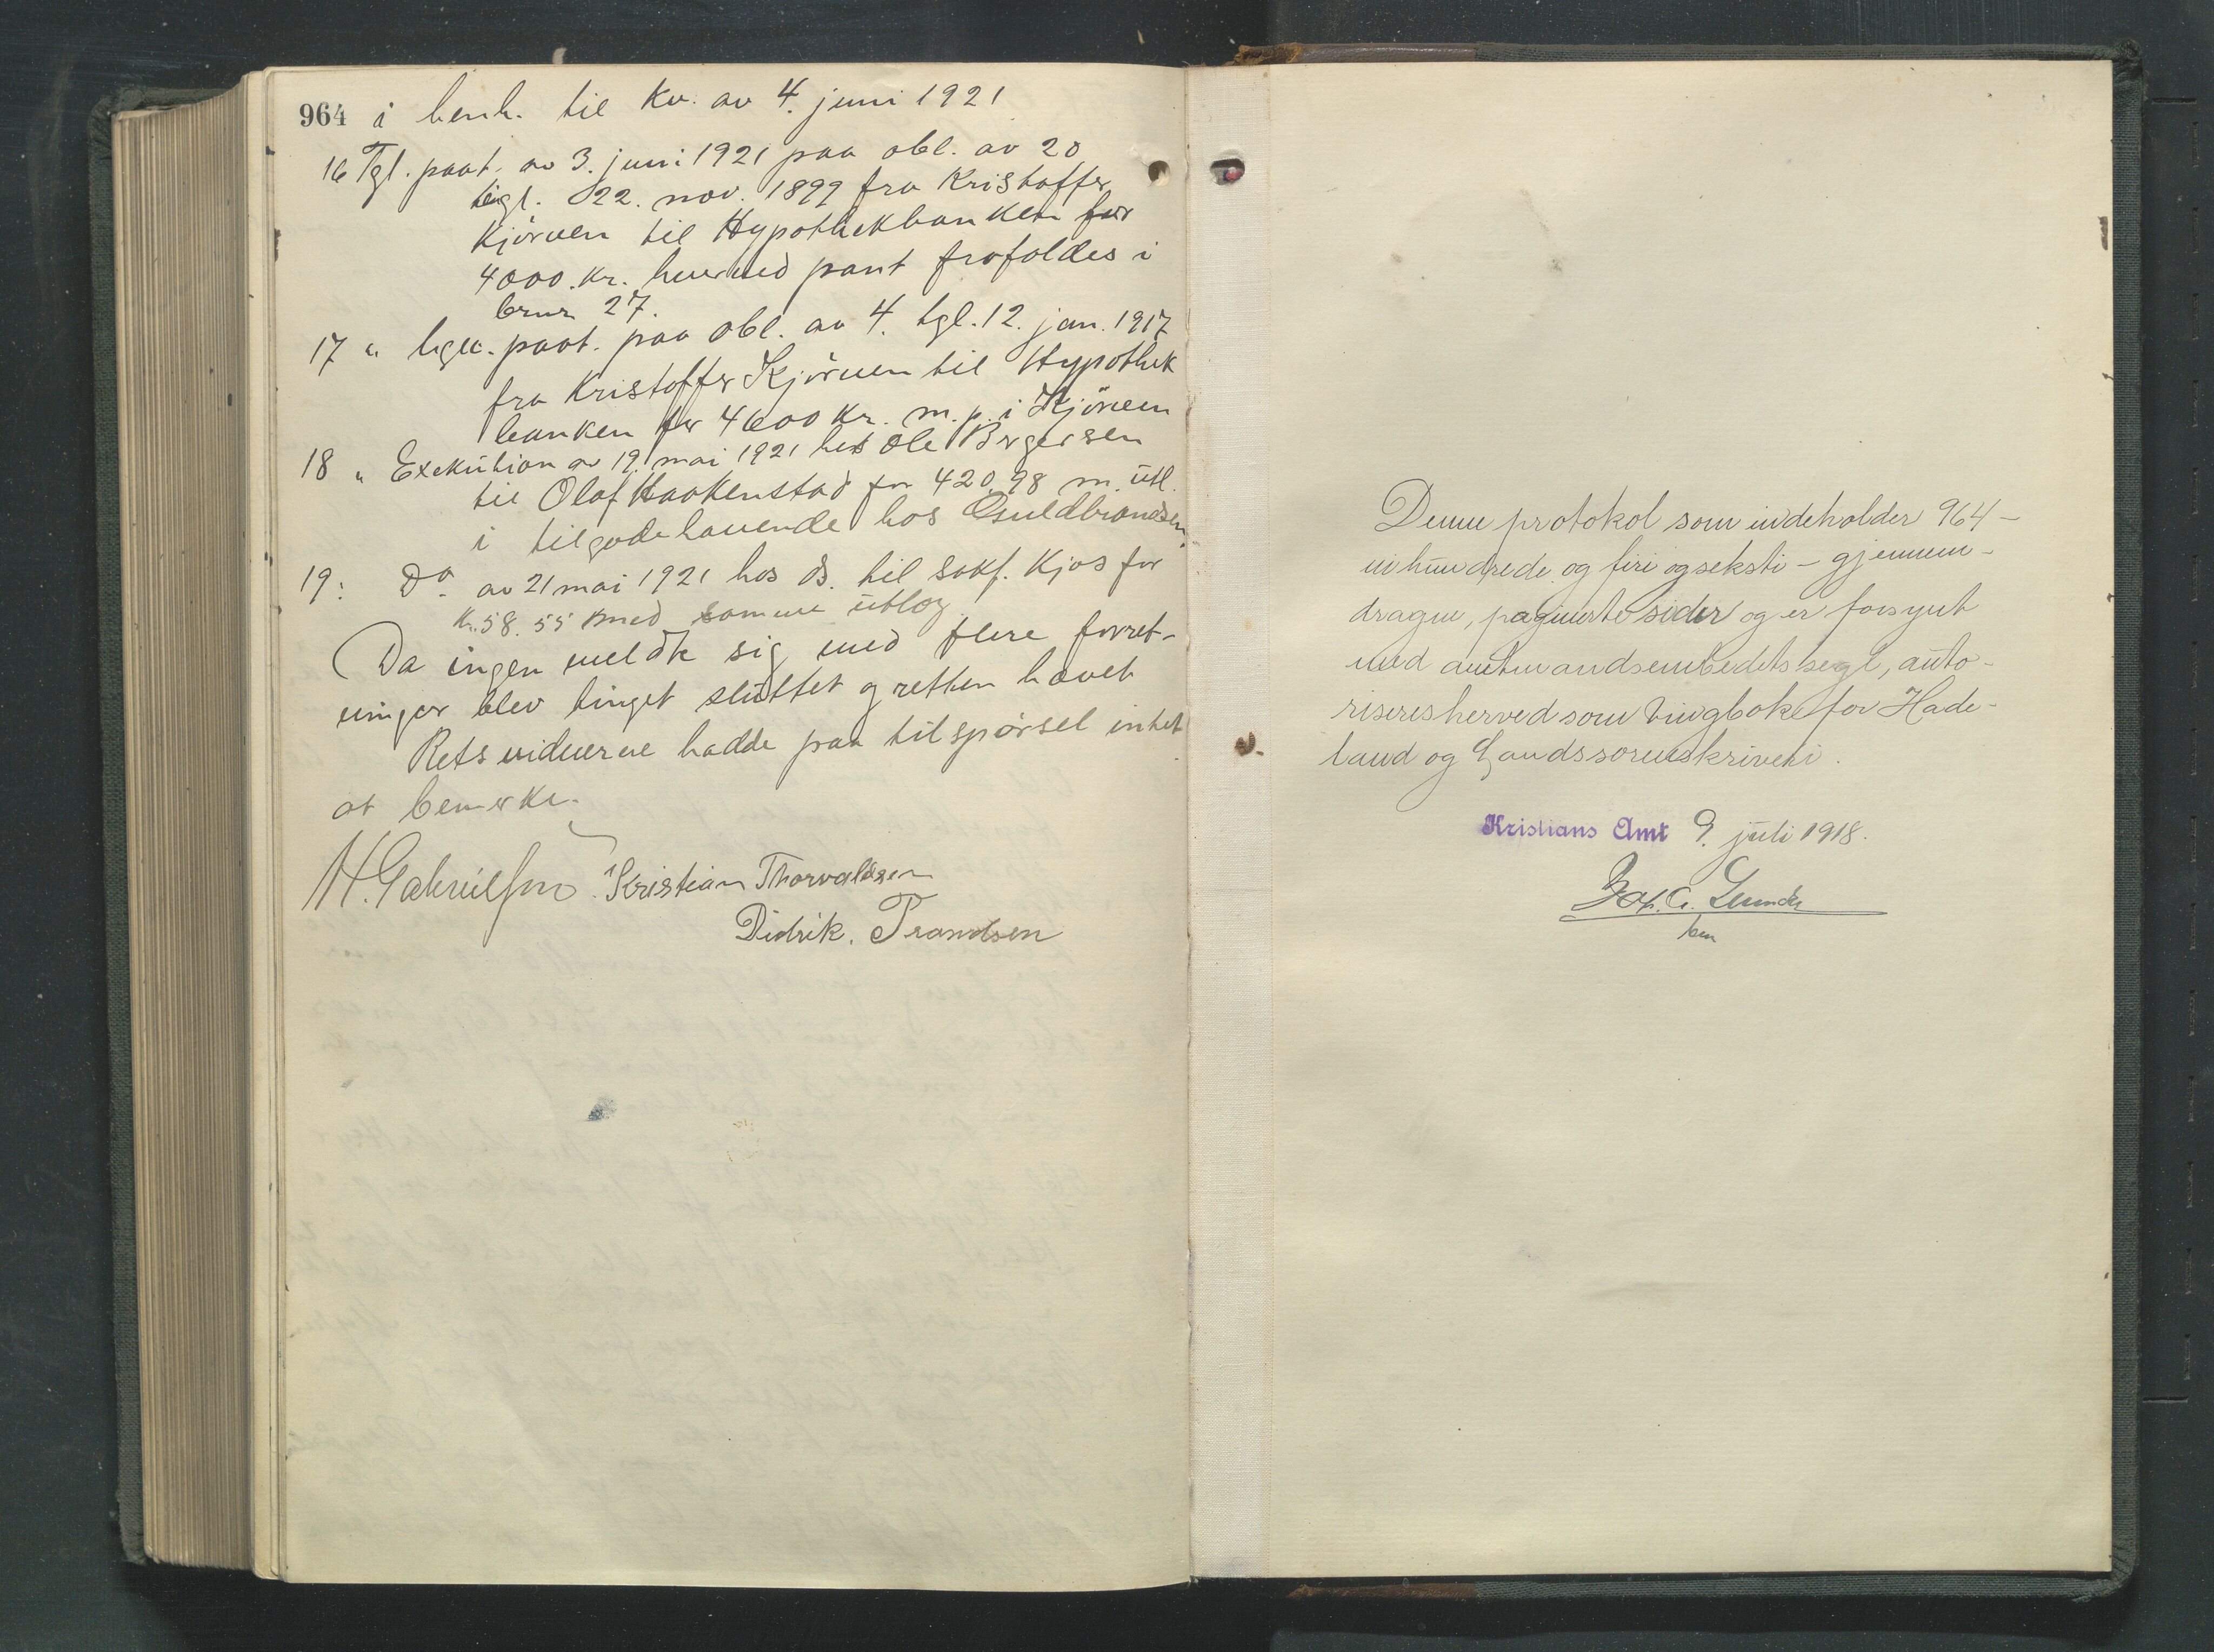 964 i henh. til Kv. av 4. juni 1921
16 Tgl. paat. av 3. juni 1921 paa obl. av 20
tigl. 22. nov. 1899 fra Kristoffer
Kjörven til Hypothekbanken for
4000 kr. hvermed pant frafaldes i
brnr 27.
17 " lign. paat. paa obl. av 4. tgl. 12. jan. 1917
fra Kristoffer Kjörven til Hypothek
banken for 4600 Kr. m. p. i Kjörven
18 " Exekution av 19. mai 1921 hos Ole Bergersen
til Olaf Haakenstad for 420.98 m. utl.
i tilgodehavende hos Guldbrandsen.
19: Do av 21 mai 1921 hos ds. til sakf. Kjos for
Kr. 58.55 med samme utlæg
Da ingen meldte sig med flere forret-
ninger blev tinget sluttet og retten hævet
Retsvidnerne hadde paa tilspørsel intet
at bemerke.
H. Gabrielsen Kristian Thorvaldsen
Didrik. Trandsen
Denne protokol som indeholder 964 -
ni hundrede og firi og seksti - gjennem-
dragne, paginerte sider og er forsynt
med amtmandsembedets segl, auto-
riseres herved som tingbok for Hade-
land og Landssorenskriveri.
Kristians Amt 9. juli 1918.